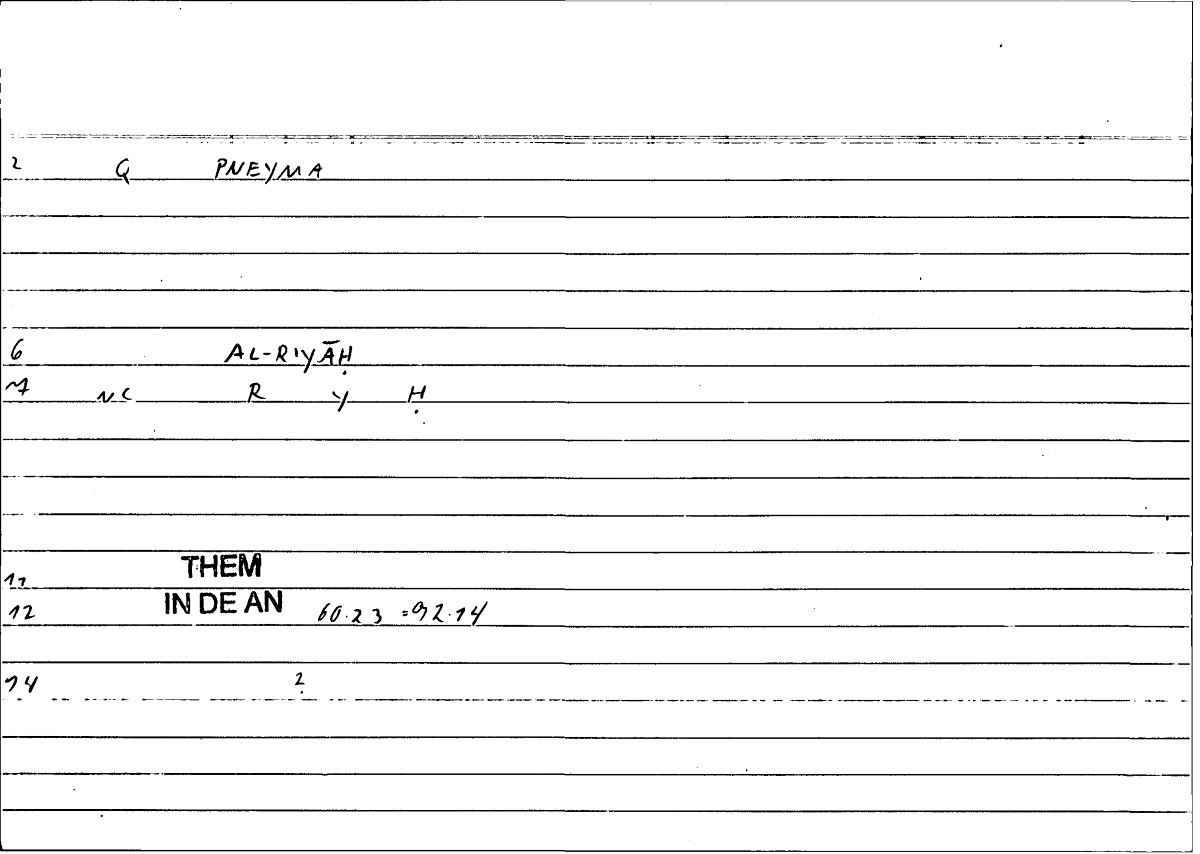 2 Q PNEYMA
6 AL-RIYĀḤ
7 NC R Y Ḥ
THEM
11
12 IN DE AN 60.23 =92.14
14 2